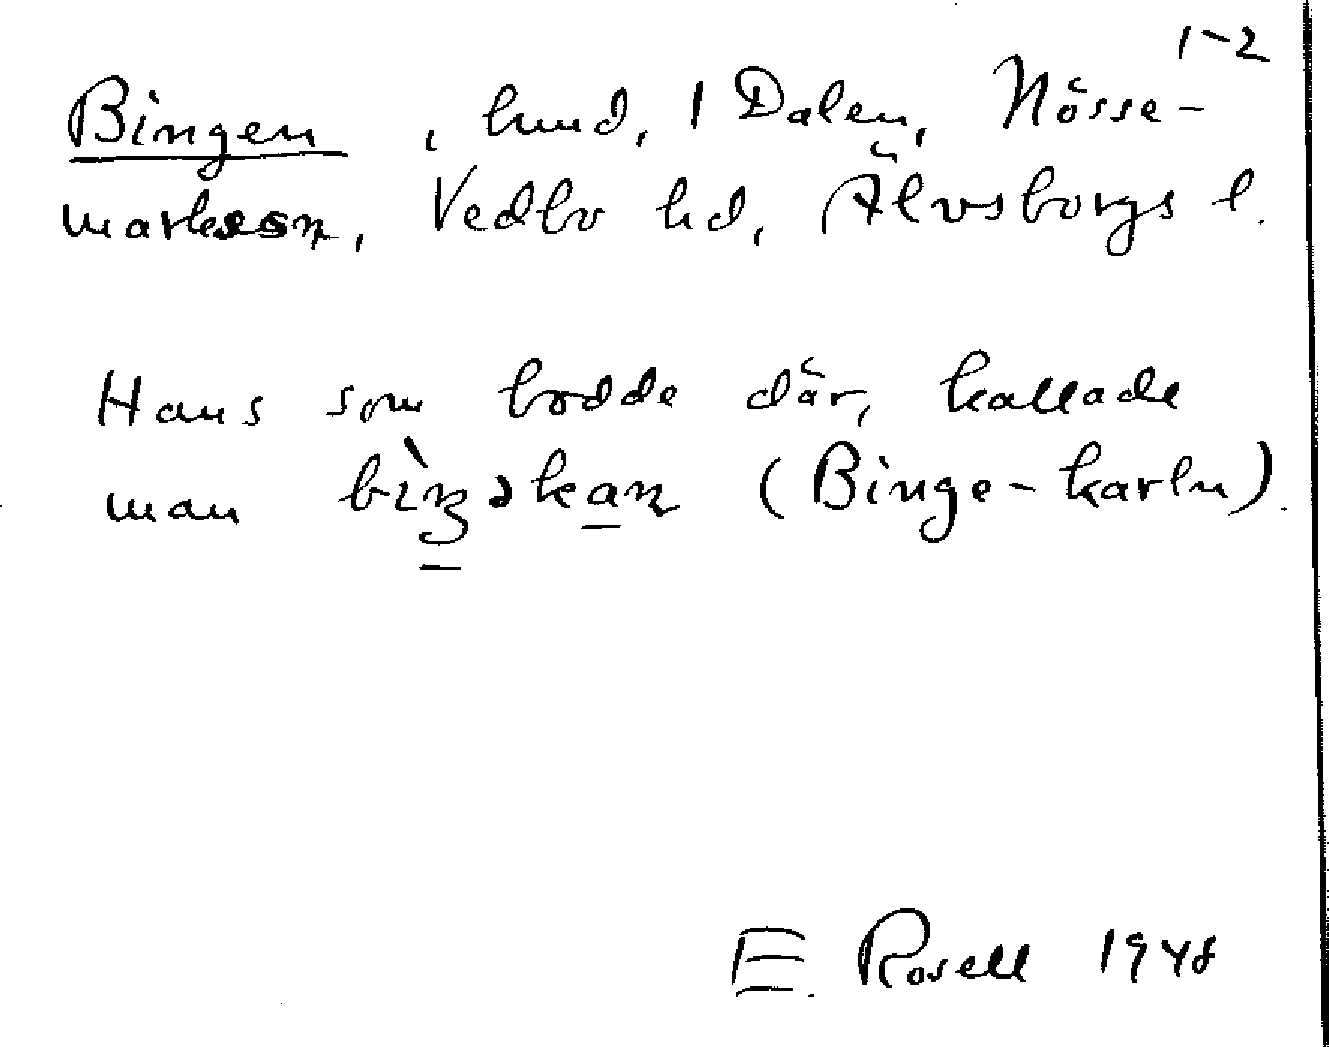 1-2
Bingen, hmd, 1 Dalen, Nösse-
marks sn, Vedbo hd, Älvsborgs l.
Hans som bodde där, kallade
man (Binge-karln).
E. Rosell 1948